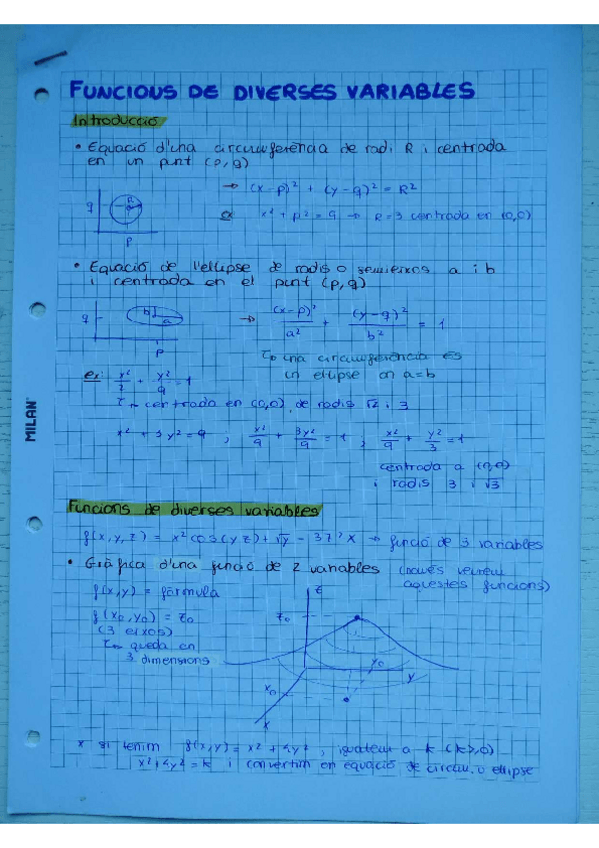 FUNCIONS DE DIVERSES VARIABLES
Introducció
• Equació d'una circumferència de radi R i centrada
en un punt (p,q)
→ (x-p)² + (y-q)² = R²
R
q
p
ex x² + p² = 9 → R=3 centrada en (0,0)
• Equació de l'ellipse de radis o semieixos a i b
i centrada en el punt (p,q)
q
b
a
p
→ (x-p)²/a² + (y-q)²/b² = 1
una circumferència és
un ellipse on a=b
ex: x²/2 + y²/9 = 1
centrada en (0,0) de radis √2 i 3
x² + 3y² = 9 ; x²/9 + 3y²/9 = 1 ; x²/9 + y²/3 = 1
centrada a (0,0)
i radis 3 i √3
MILAN
Funcions de diverses variables
f(x,y,z) = x² cos(yz) + √y - 37 x → funció de 3 variables
• Gràfica d'una funció de 2 variables (només veurem
aquestes funcions)
f(x,y) = fórmula
f(x₀,y₀) = z₀
(3 eixos)
queda en
3 dimensions
z
z₀
y₀
y
x₀
x
* si tenim f(x,y) = x² + 4y², igualem a k (k>0)
x² + 4y² = k i convertim en equació de circum. o ellipse